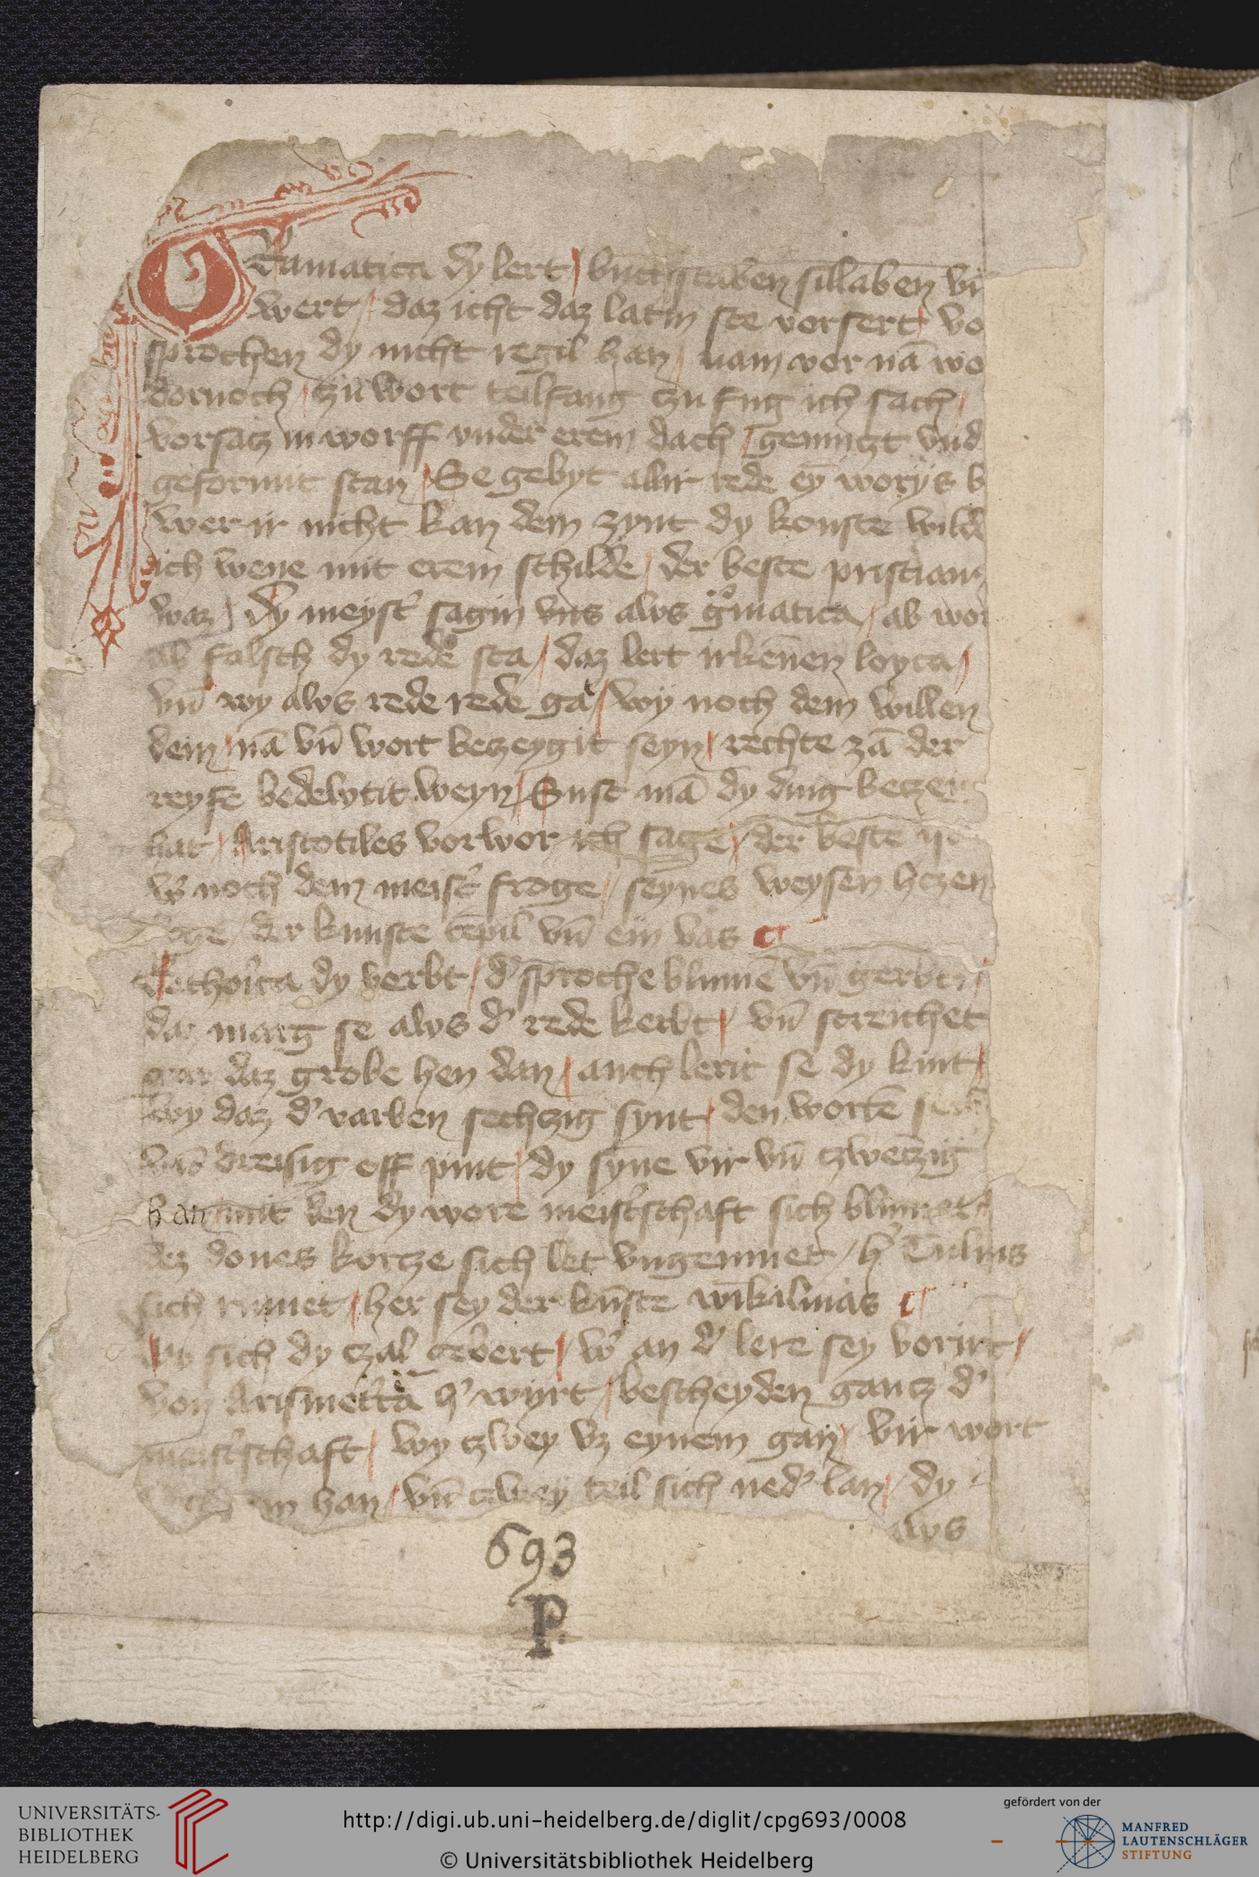 Gramatica dy lert / buchstaben sillaben vn
wert / daz icht daz latin ste vorsert / vo
sprochen dy nicht regil han / nam vor nā wo
dornoch / zu wort teilfang zu fug ich sach /
vorsatz in worff vnder erem dach / genuczt vnd
geformit stan / Se gebyt allir rede eȳ
wer ir nicht kan dem zynt dy konste wild
ich wene mit erem schilde / der beste pristian
waz / Dy meyst' sagin vns aws g̊matica / ab wor
ab falsch dy rede sta / daz lert irkēnen loyca /
vn̄ wy aws rede rede ga / wy noch dem willen
dein / nā vn̄ wort beczeygit seyn / rechte zā der
reyfe bedewtit weyn / Sust mā dy ding
hat / Aristotiles vorwor ich sage / der beste
w' noch dem meist' froge / seynes weysen
der kunste tēpil vn̄ ein vas
Rethorica dy verbt / d' sproche blumē vn̄ gerbt /
daz marg se aws d' rede kerbt / vn̄ streichet
gar daz grobe hen dan / auch lerit se dy kint /
wy daz d' varben sechczig synt / den wortē
dreisig off pint / dy syne vir vn̄ czwēzig
han / mit den dy wore meist'schaft sich blumet /
dez dones korcze sich let vngerumet / h' Tulius
sich rumet / her sey der kūste
Wy sich dy czal gebert / w' an d' lere sey vorirt /
von Arismetica h' wyrt / bescheyden gancz d'
meist'schaft / wy czwey vz eynem gan / vir wort
han / vn̄ czwey teil sich ned' lan / dy
aws
693
P.
UNIVERSITÄTS-
BIBLIOTHEK
HEIDELBERG
http://digi.ub.uni-heidelberg.de/diglit/cpg693/0008
© Universitätsbibliothek Heidelberg
gefördert von der
MANFRED
LAUTENSCHLÄGER
STIFTUNG